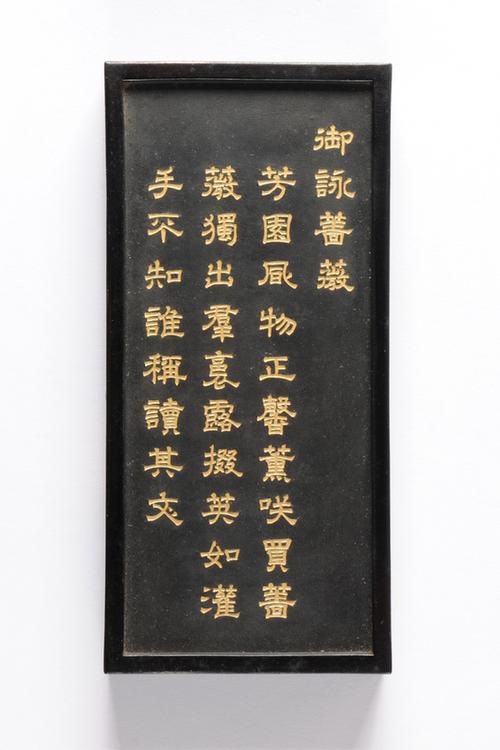 御詠薔薇
芳園風物正馨薰咲買薔
薇獨出羣裛露掇英如灌
手不知誰稱讀其文